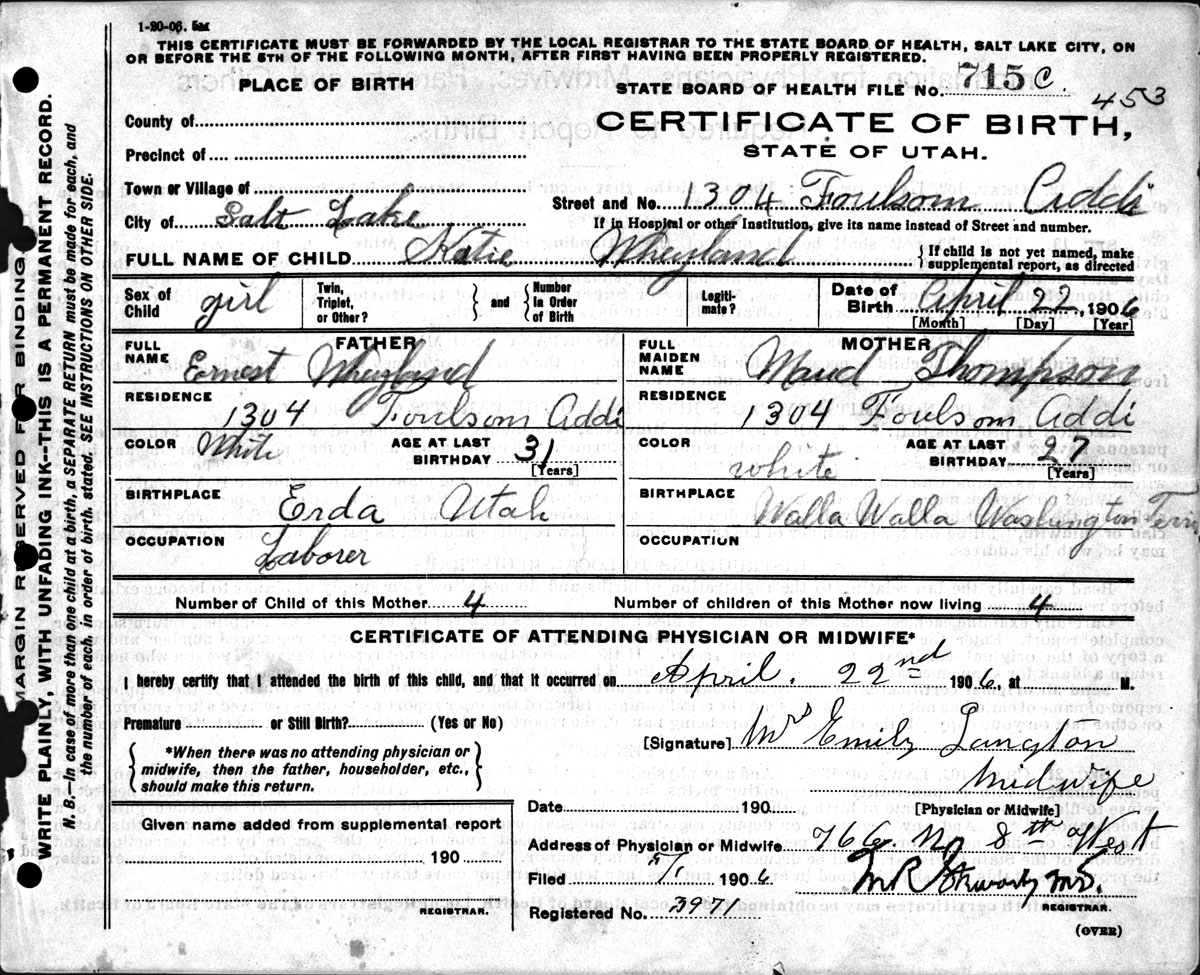 1-20-06. 5M
THIS CERTIFICATE MUST BE FORWARDED BY THE LOCAL REGISTRAR TO THE STATE BOARD OF HEALTH, SALT LAKE CITY, ON
OR BEFORE THE 5TH OF THE FOLLOWING MONTH, AFTER FIRST HAVING BEEN PROPERLY REGISTERED.
PLACE OF BIRTH
STATE BOARD OF HEALTH FILE No. 715 C. 453
County of
CERTIFICATE OF BIRTH,
Precinct of
STATE OF UTAH.
Town or Village of
Street and No. 1304 Foulsom Addi
City of Salt Lake
If in Hospital or other Institution, give its name instead of Street and number.
FULL NAME OF CHILD Katie Wheyland { If child is not yet named, make supplemental report, as directed
Sex of Child girl Twin, Triplet, or Other? } and { Number in Order of Birth Legiti-mate? Date of Birth April 22, 1906
[Month] [Day] [Year]
FATHER
FULL NAME Ernest Wheyland
RESIDENCE
1304 Foulsom Addi
COLOR White AGE AT LAST BIRTHDAY 31
[Years]
BIRTHPLACE
Erda Utah
OCCUPATION
Laborer
MOTHER
FULL MAIDEN NAME Maud Thompson
RESIDENCE
1304 Foulsom Addi
COLOR white AGE AT LAST BIRTHDAY 27
[Years]
BIRTHPLACE
Walla Walla Washington Terri
OCCUPATION
Number of Child of this Mother 4 Number of children of this Mother now living 4
CERTIFICATE OF ATTENDING PHYSICIAN OR MIDWIFE*
I hereby certify that I attended the birth of this child, and that it occurred on April. 22nd 1906, at M.
Premature or Still Birth? (Yes or No)
{ *When there was no attending physician or midwife, then the father, householder, etc., should make this return. }
[Signature] Mrs Emily Langton
Midwife
[Physician or Midwife]
Date 190
Given name added from supplemental report
190
REGISTRAR.
Address of Physician or Midwife. 766. No 8th West
Filed 1906
M.D.
REGISTRAR.
Registered No. 3971
(OVER)
MARGIN RESERVED FOR BINDING
WRITE PLAINLY, WITH UNFADING INK--THIS IS A PERMANENT RECORD.
N. B.--In case of more than one child at a birth, a SEPARATE RETURN must be made for each, and
the number of each, in order of birth, stated. SEE INSTRUCTIONS ON OTHER SIDE.